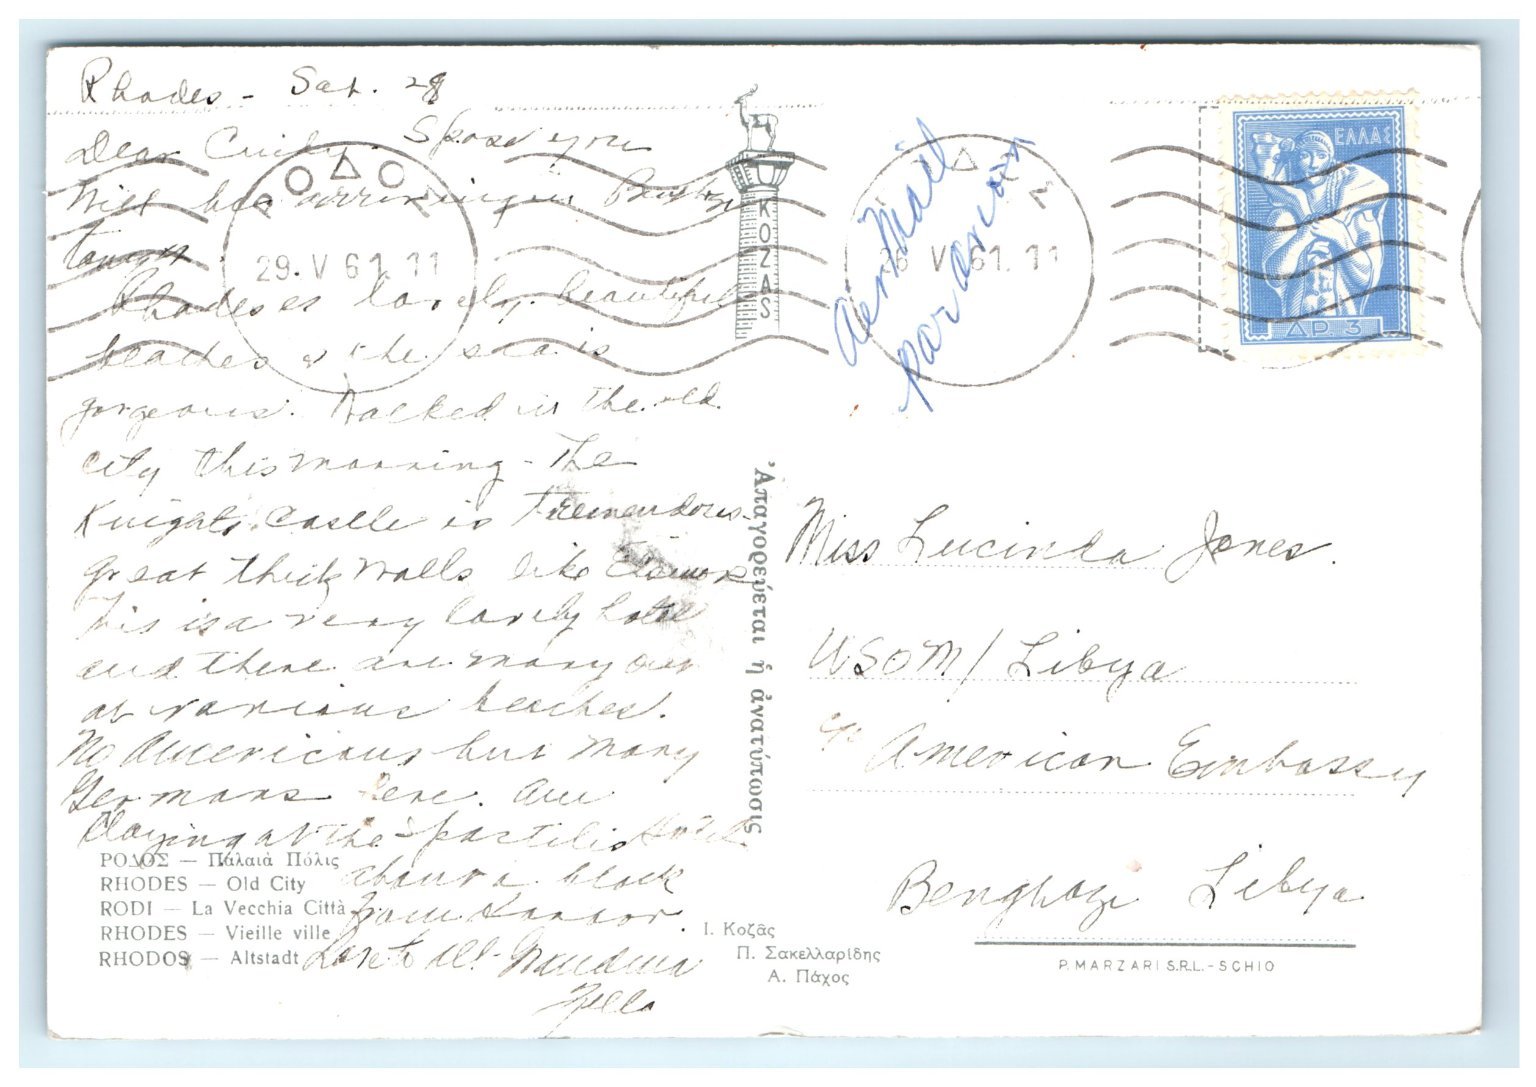 Rhodes - Sat. 28
Dear Cindy. Spose you
will be arriving in
Rhodes is lovely. beautiful
beaches & the sea is
gorgeous. Walked in the old
city this morning - The
Knights Castle is tremendous -
great thick walls like
This is a very lovely hotel
and there are many
at various beaches.
No Americans but many
Germans here. Am
staying at the Hotel
about a block
from
Love to all - Grandma
Zella
ΡΟΔΟΣ — Παλαιὰ Πόλις
RHODES — Old City
RODI — La Vecchia Città
RHODES — Vieille ville
RHODOS — Altstadt
ΡΟΔΟΣ
29.V 61.11
KOZAS
Ἀπαγορεύεται ἡ ἀνατύπωσις
Ι. Κοζᾶς
Π. Σακελλαρίδης
Α. Πάχος
Aer Mail
par avion
V 61.11
ΕΛΛΑΣ
ΔΡ. 3
Miss Lucinda Jones.
USOM/Libya
c/o American Embassy
Benghazi Libya
P. MARZARI S.R.L. - SCHIO